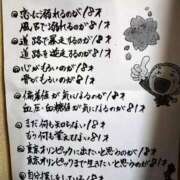 ◎恋に溺れるのが18才
風呂で溺れるのが81才
◎道路を暴走するのが18才
道路を逆走するのが81才
◎心がもろいのが18才
骨がもろいのが81才
◎偏差値が気になるのが18才
血圧・血糖値が気になるのが81才
◎まだ何も知らない18才
もう何も覚えない81才
◎東京オリンピックに出たいと思うのが18才
東京オリンピックまで生きたいと思うのが81才
◎自分探しをしている18才